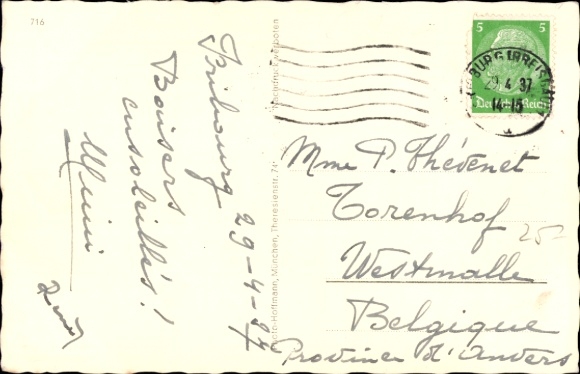 716
Fribourg 29-4-37
Baisers
ensoleillés!
Mimi
Photo-Hoffmann, München, Theresienstr. 74
Nachdruck verboten
5 5
Deutsches Reich
BURG (BREISGAU)
29.4.37
14-15
Mme P. Thévenet
Torenhof
25-
Westmalle
Belgique
Province d'Anvers